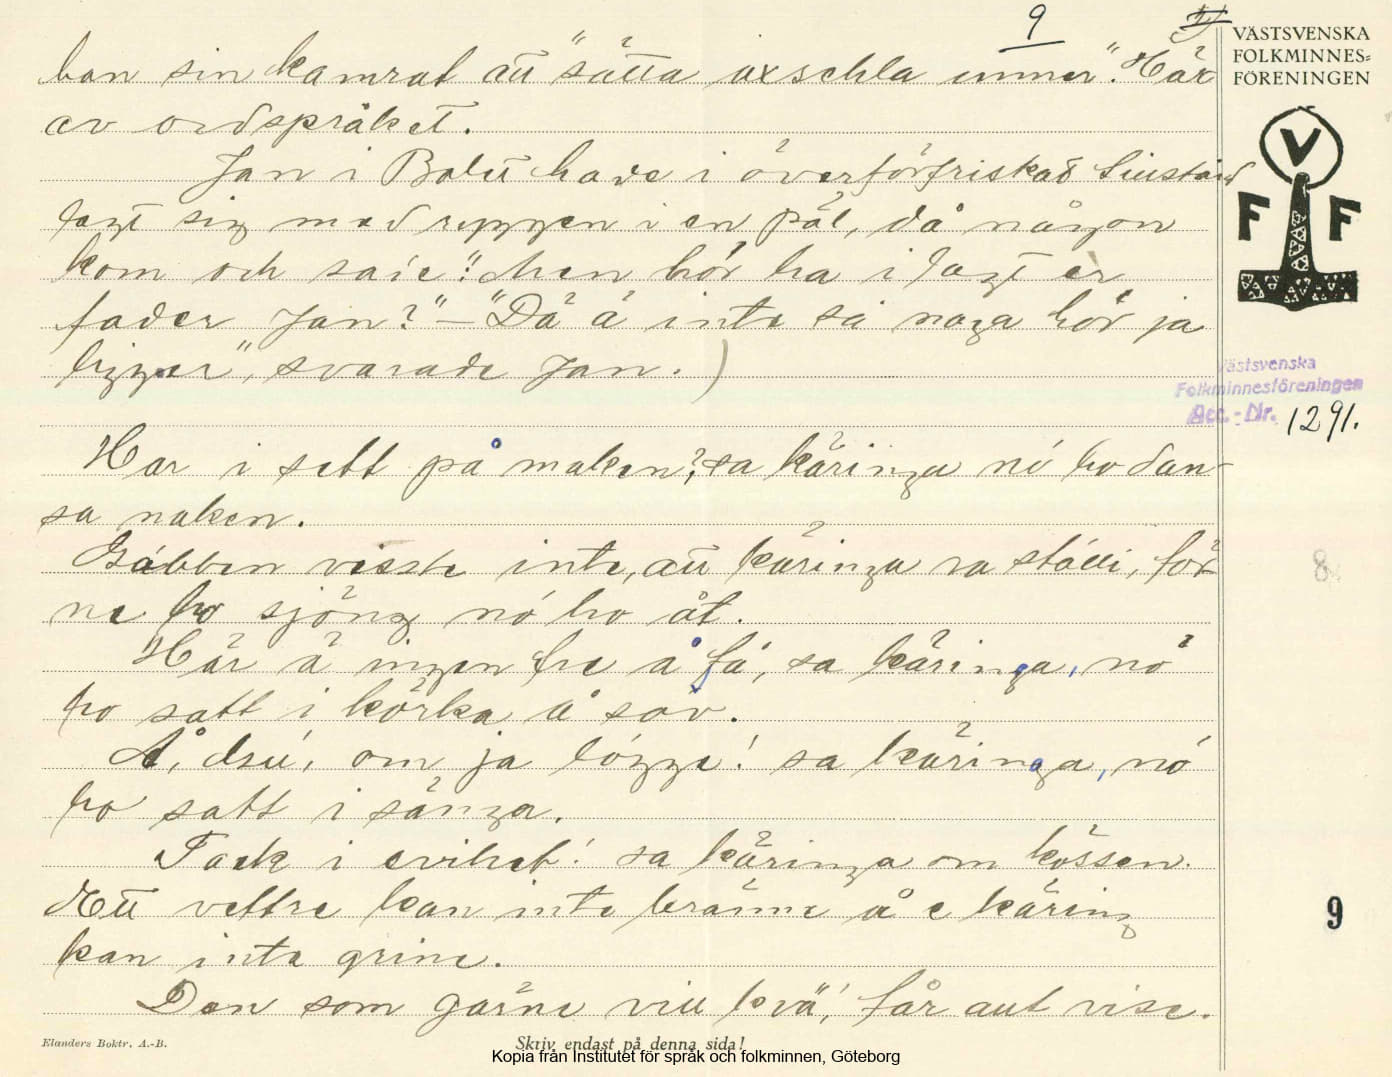 9
VÄSTSVENSKA
FOLKMINNES-
FÖRENINGEN
han sin kamrat att "sätta axschla unner". Här
av ordspråket.
Jan i Bolet hade i överförfriskad
lagt sig med ryggen i en pöl, då någon
kom och sa'e: "Men hör ha i lagt er
fader Jan?" — "Dä ä inte så noga hör ja
ligger", svarade Jan.)
V
F F
Västsvenska
Folkminnesföreningen
Acc.-Nr. 1291.
Har i sett på maken? sa käringa nó ho dan-
sa naken.
Gubben visste inte, att käringa va ställi, för
ne ho sjöng nó ho åt.
8
Här ä ingen fre å få, sa käringa, nó
ho satt i körka å sov.
om ja lógge! sa käringa, nó
ho satt i sänga.
Tack i evihet! sa käringa om kössen.
Ett vettre kan inte bränne å e käring
kan inte grine.
9
Den som gärne vill kvä', får aut vise.
Elanders Boktr. A.-B.
Skriv endast på denna sida!
Kopia från Institutet för språk och folkminnen, Göteborg